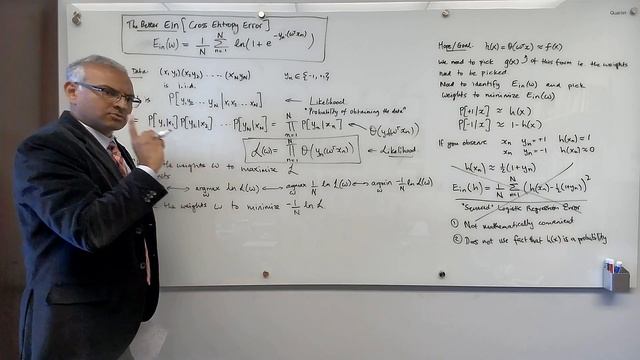 The Better Ein [Cross Entropy Error]
Ein(w) = 1/N Σ_{n=1}^{N} ln(1 + e^{-yₙ(wᵗxₙ)})
Data: (x₁,y₁) (x₂,y₂) ... (x_N y_N) yₙ ∈ {-1, 1}
is i.i.d.
is P[y₁ y₂ ... y_N | x₁ x₂ ... x_N] ← Likelihood
"Probability of obtaining the data"
= P[y₁|x₁] P[y₂|x₂] ... P[y_N|x_N] = ∏_{n=1}^{N} P[yₙ|xₙ] θ(yₙ(wᵗxₙ))
ℒ(w) = ∏_{n=1}^{N} θ(yₙ(wᵗxₙ)) ← Likelihood
the weights w to maximize ℒ
↔ argmax_w ln ℒ(w) ↔ argmax_w 1/N ln ℒ(w) ↔ argmin_w -1/N ln ℒ(w)
the weights w to minimize -1/N ln ℒ
Quartet
Hope/Goal: h(x) = θ(wᵗx) ≈ f(x)
We need to pick g(x) of this form ie the weights
need to be picked
Need to identify Ein(w) and pick
weights to minimize Ein(w)
P[+1|x] ≈ h(x)
P[-1|x] ≈ 1-h(x)
If you observe xₙ yₙ=+1 h(xₙ)≈1
xₙ yₙ=-1 h(xₙ)≈0
h(xₙ) ≈ ½(1+yₙ)
Ein(h) = 1/N Σ_{n=1}^{N} (h(xₙ) - ½(1+yₙ))²
"Squared" Logistic Regression Error
① Not mathematically convenient
② Does not use fact that h(x) is a probability